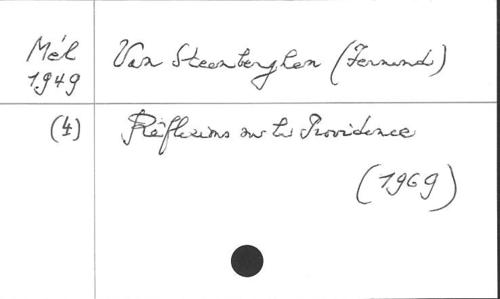 Mél Van Steenberghen (Fernand)
1949
(4) Réflexions sur la Providence
(1969)